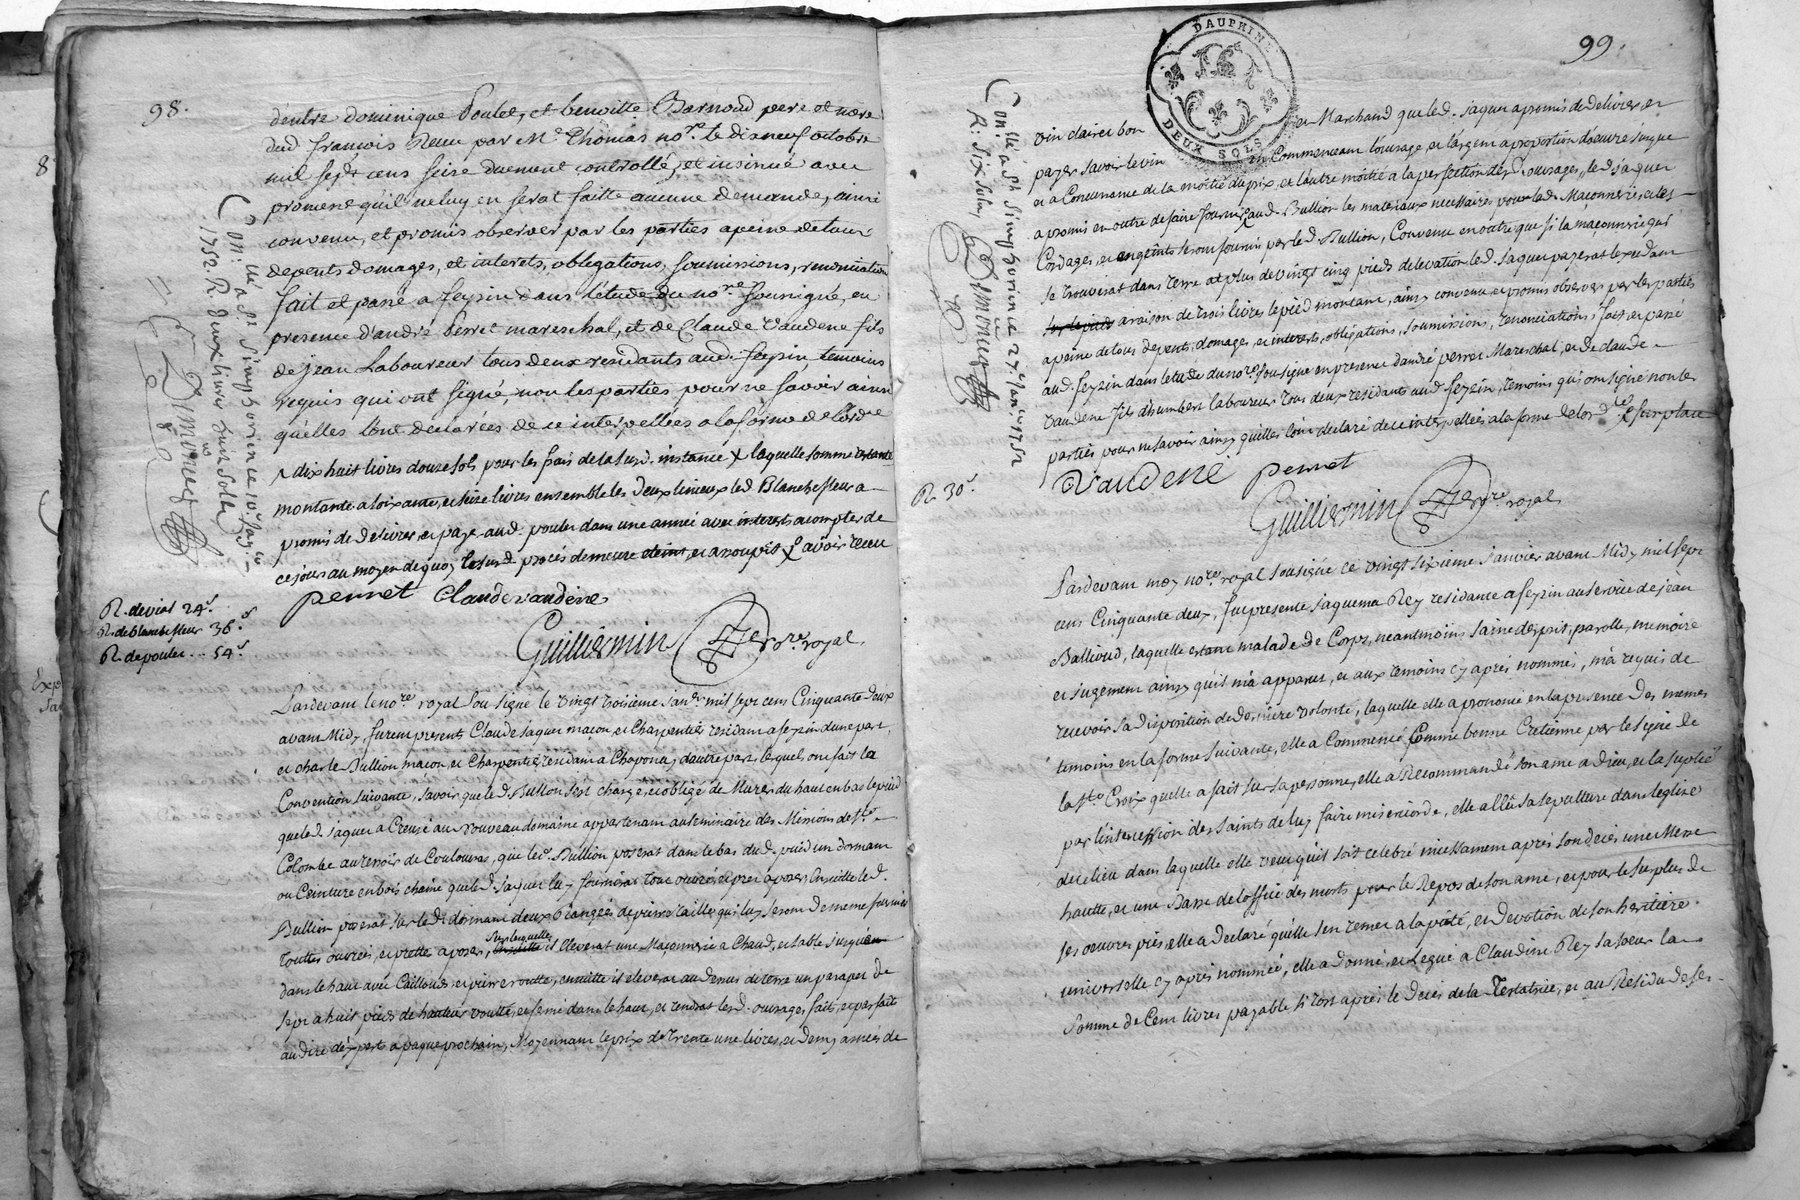 98.
d'entre dominique Poulet, et benoitte Barnoud pere et mere
dud françois Receu par Me. Thomas nore. le dixneuf octobre
mil sept cens seise duement controllé, et insinué avec
promesse qu'il ne luy en serat faitte aucune demande, ainsi
convenu, et promis observer par les parties apeine de tous
depents domages, et interets, obligations, soumissions, renonciations
fait et passé a feysin dans l'etude du nore soussigné, en
presence d'andré Perret mareschal, et de Claude Vaudene fils
de jean Laboureur tous deux residants aud. feysin temoins
requis qui ont signé, non les parties pour ne savoir ainsi
qu'elles l'ont declarées de ce interpellées a la forme de l'ordce
dix huit livres douze sols pour les frais de la susd. instance laquelle somme
montante a soixante, et seise livres ensemble les deux linieux led Blanchefleur a
promis de delivrer, et payer aud. poulet dans une année avec interets a compter de
ce jour au moyen de quoy lesusd. procés demeure eteint, et assoupit avoir receu
pernet Claudevaudene
Guilliermin nore. royal
R. deviat 24s.
R. de blanchefleur 36.s
R. de poulet... 54s.
Conllé a St Simphorien ce 10e Jan.er
1752. R. deux livres huit sols
Demoney
Pardevant le nore. royal sousigné le vingt troisieme janer. mil sept cens Cinquante deux
avant Midy furent presents Claude Jaquet maçon, et Charpentier residant a feysin d'une part,
et charle Bullion macon, et Charpentier residant a Chaponay d'autre part, lequel ont fait la
Convention suivante, savoir que led. Bullion s'est chargé, et obligé de Murer du haut en bas le puid
que led. Jaquet a Creusé au nouveau domaine appartenant au seminaire des Missions de Ste.
Colombe au terroir de Coulouvas, que led. Bullion poserat dans le bas dud. puid un dormant
ou Ceinture en bois chaine que led. Jaquet luy fournirat tout ouvré, et pret a poser Ensuitte led.
Bullion poserat sur led. dormant deux rangées de pierre tailles qui luy seront de meme fournies
touttes ouvrées, et prette a poser, sur lesquelles il eleverat une Maçonnerie a Chaud, et sable jusqu'en
dans le haut avec Cailloux, et pierre routte, ensuitte il eleverat au dessus de terre un parapet de
sept a huit pieds de hauteur voutté, et fermé dans le haut, et rendrat lesd. ouvrages fait, et parfait
au dire d'expert a paque prochain, Moyennant le prix de trente une livres, et demy asnées de
99.
DAUPHINE
DEUX SOLS
vin clairet bon et Marchand que led. Jaquet a promis de delivrer, et
payer savoir le vin en Commencant l'ouvrage, et l'argent a proportion d'oeuvre jusque
et a Concurrance de la moitié du prix, et l'autre moitié a la perfection desd. ouvrages, led Jaquet
a promis en outre de faire fournir aud. Bullion les materiaux necessaires pour lad. Maconnerie, et les
Cordages, et engeints seront fournis par led. Bullion, Convenu en outre que si la maconnerie qui
se trouverat dans terre at plus de vingt cinq pieds d'elevation led. Jaquet payerat l'exedant
a raison de trois livres le pied montant, ainsy convenu et promis observer par les parties
apeine de tous depents, domages, et interets, obligations, soumissions, renonciations, fait, et passé
aud. feysin dans l'etude du nore. sousigné en presence d'andré perret Mareschal, et de claude
vaudene fils d'humbert laboureur tous deux residants aud. feysin, temoins qui ont signé non les
parties pour ne savoir ainsy qu'elles l'ont declaré de ce interpellées a la forme de l'ord.ce
Vaudene pernet
Guilliermin nore. royal
Conllé a St Simphorien ce 27e Janer 1752
R: Six sols
Demoney
R. 30s.
Pardevant moy nore. royal sousigné ce vingt sixieme janvier avant Midy mil sept
cens Cinquante deux, fut presente Jaquema Rey residante a feysin au service de jean
Ballioud, laquelle estant malade de Corps, neantmoins saine d'esprit, parolle, memoire
et jugement ainsy qu'il m'a apparut, et aux temoins cy aprés nommés, m'a requis de
recevoir sa disposition de derniere volonté, laquelle elle a prononcé en la presence des memes
temoins en la forme suivante, elle a Commencé Comme bonne Cretienne par le signe de
la Ste. Croix quelle a fait sur sa personne, elle a Recommandé son ame a Dieu, et la suplié
par l'intercession des saints de luy faire misericorde, elle a élu sa sepulture dans l'eglise
du lieu dans laquelle elle veut qu'il soit celebré incessament aprés son decés une Messe
hautte, et une Basse de l'office des morts pour le Repos de son ame, et pour le surplus de
ses oeuvres pies, elle a declaré qu'elle s'en remet a la pieté, et devotion de son heritiere
universelle cy aprés nommée, elle a donné, et Legué a Claudine Rey sa soeur la
somme de Cent livres payable si tost aprés le decés de la Testatrice, et au Residu de ses